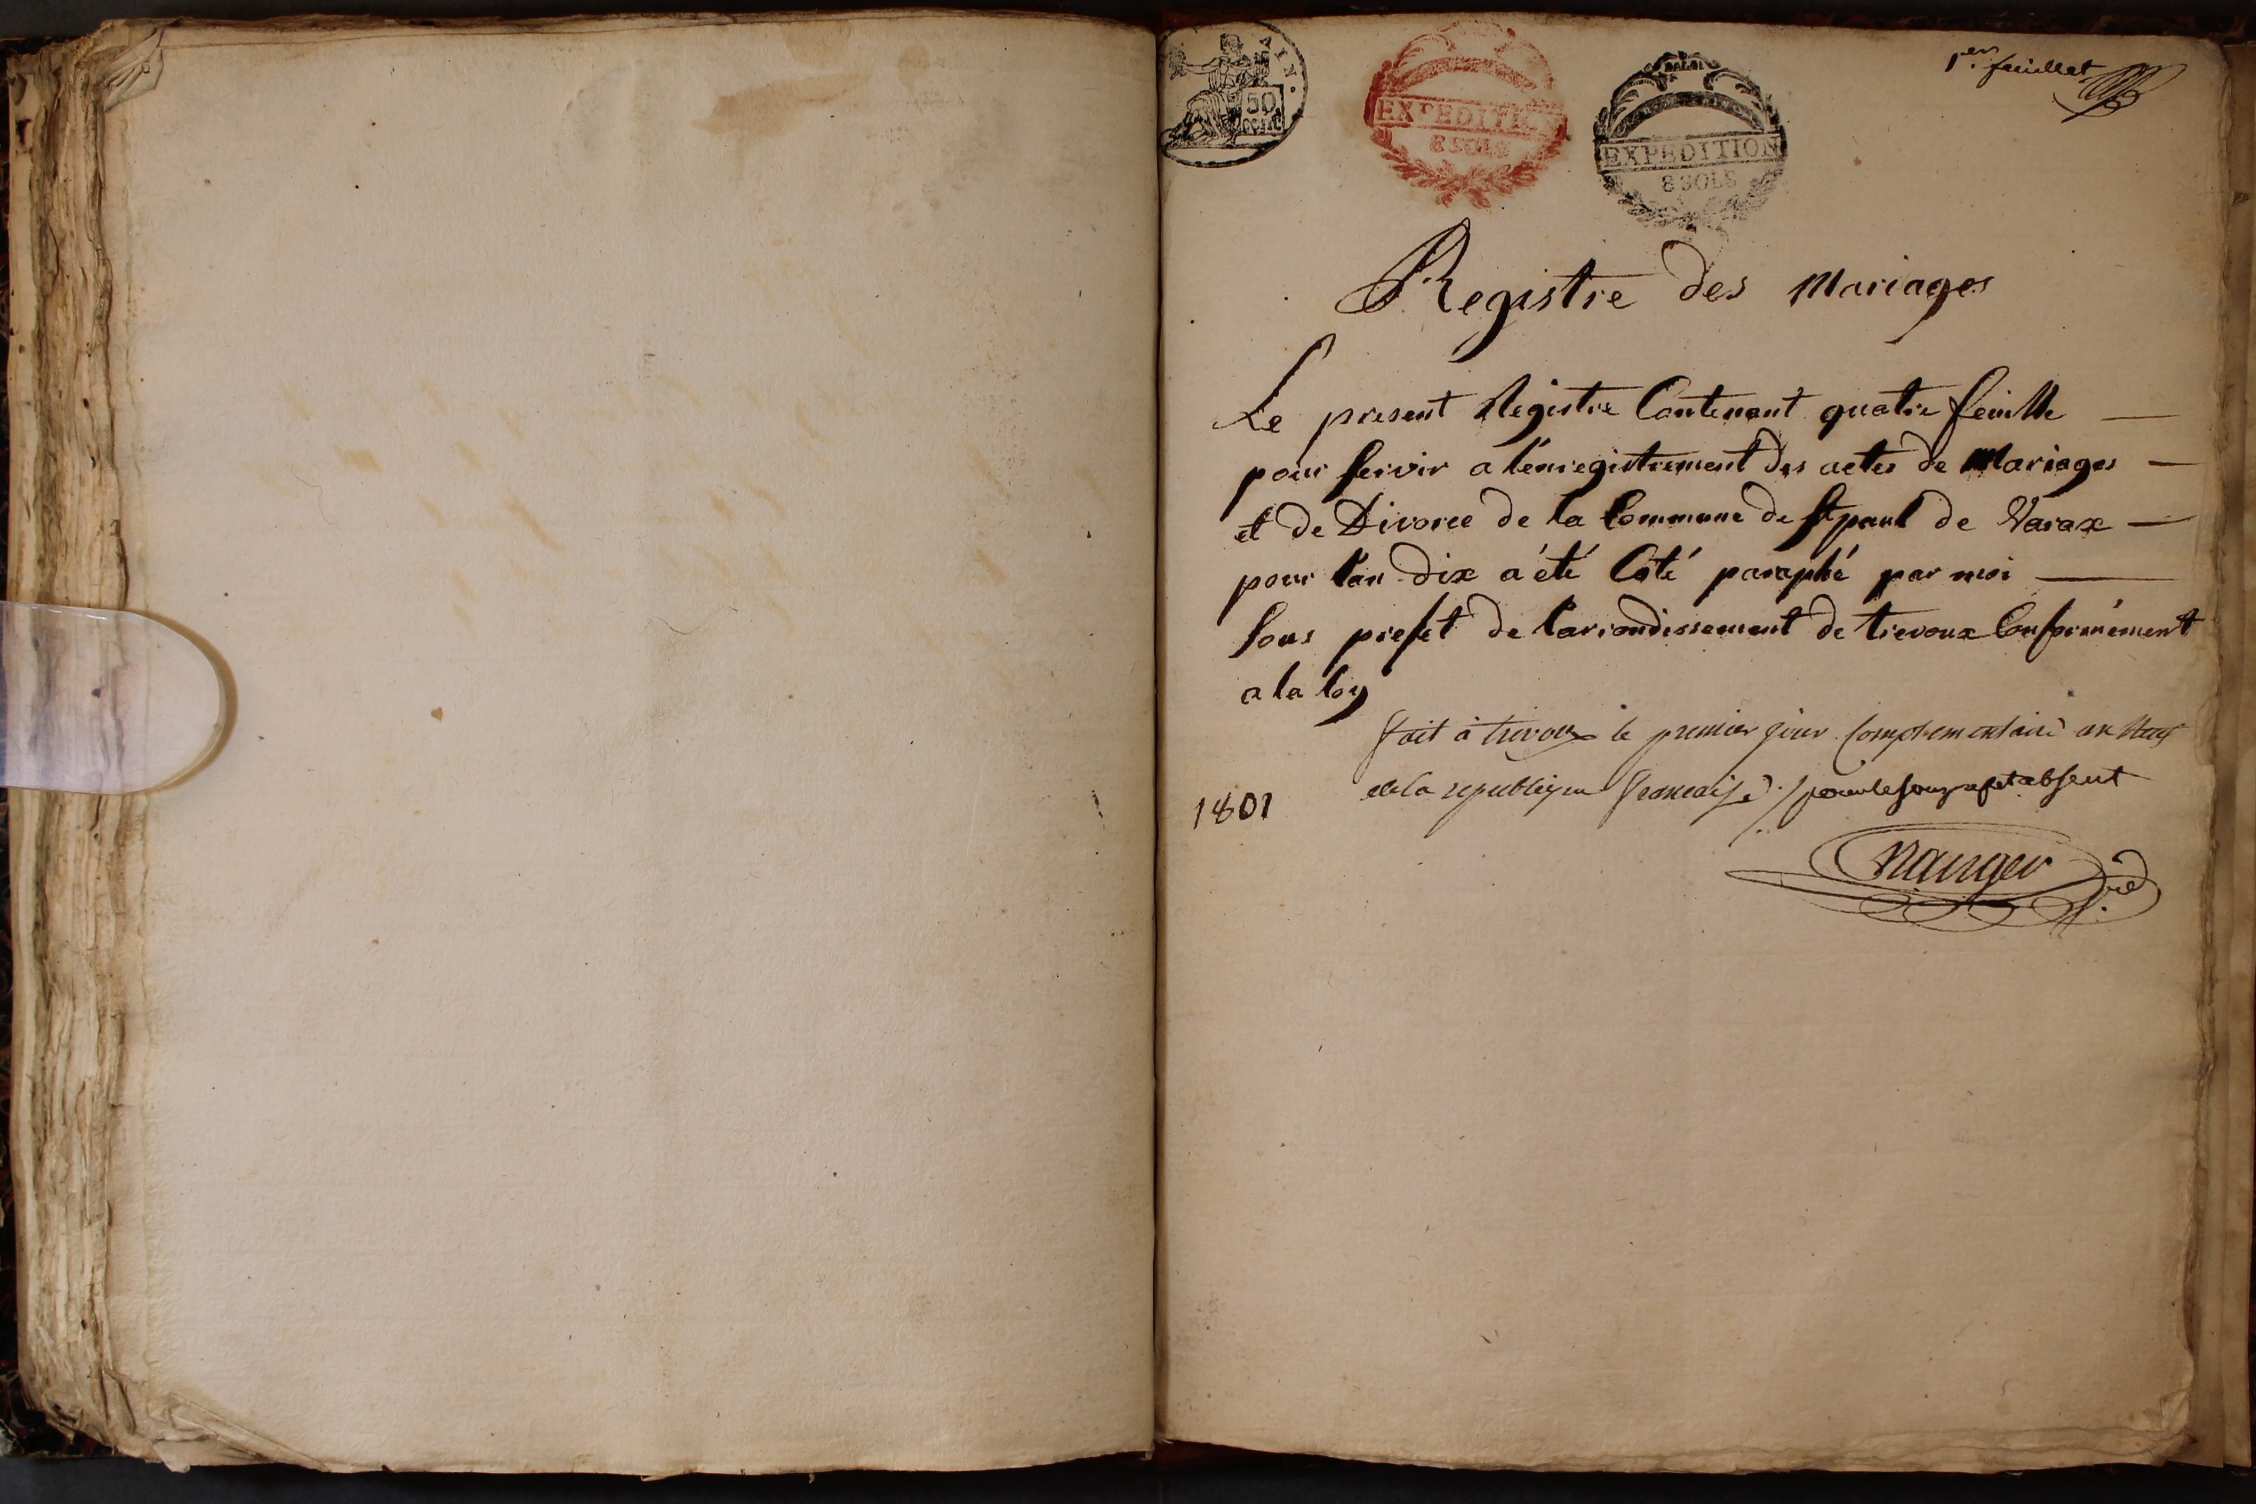 AIN.
50
CENT.
EXPEDITION
8 SOLS
EXPEDITION
8 SOLS
1er feuillet
Registre des Mariages
Le present Registre Contenant quatre feuille
pour servir a l'enregistrement des actes de Mariages
et de Divorce de la Commune de St paul de Varax
pour l'an dix a été Coté paraphé par moi
Sous prefet de l'arrondissement de trevoux Conformément
a la loy
fait à trevoux le premier jour Complementaire an Neuf
de la republique francaise. / pour le sous prefet absent
1801